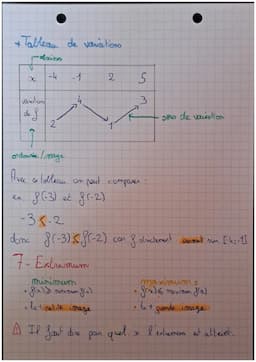 * Tableau de variations
x -4 -1 2 5
variation de f 2 4 1 3
sens de variation
ordonnée / image
Avec ce tableau on peut comparer :
ex f(-3) et f(-2)
-3 < -2
donc f(-3) < f(-2) car f strictement sur [-4;-1]
7 - Extremum
minimum maximum :
• f(x) ≥ • f(x) ≤
• la + petite image • la + grande image
⚠ Il faut dire pour quel x l'extremum est atteint.